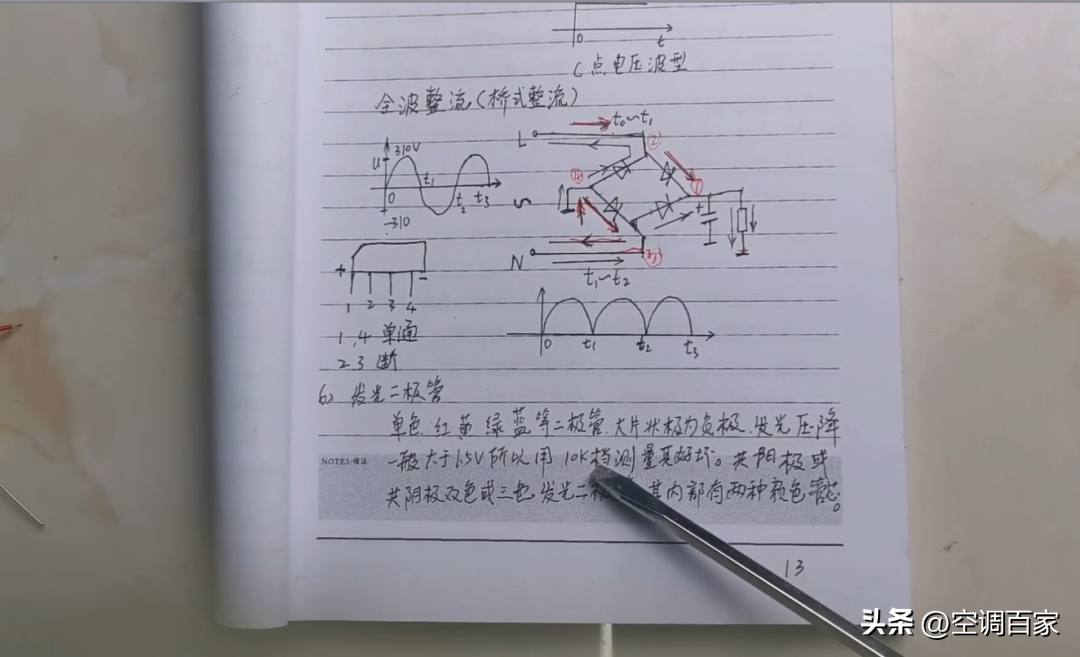 0
t
C点电压波型
全波整流(桥式整流)
t₀~t₁
L
②
310V
u
t₁
0
t₂
t₃
-310
④
①
+
N
③
t₁~t₂
+
-
1 2 3 4
0 t₁ t₂ t₃
1,4 单通
2 3 断
6> 发光二极管
单色.红黄绿蓝等二极管.大片状极为负极.发光压降
一般大于1.5V所以用10K档测量其好坏。共阳极或
NOTES·備註
共阴极双色或三色发光二极 其内部有两种颜色管芯。
13
头条 @空调百家